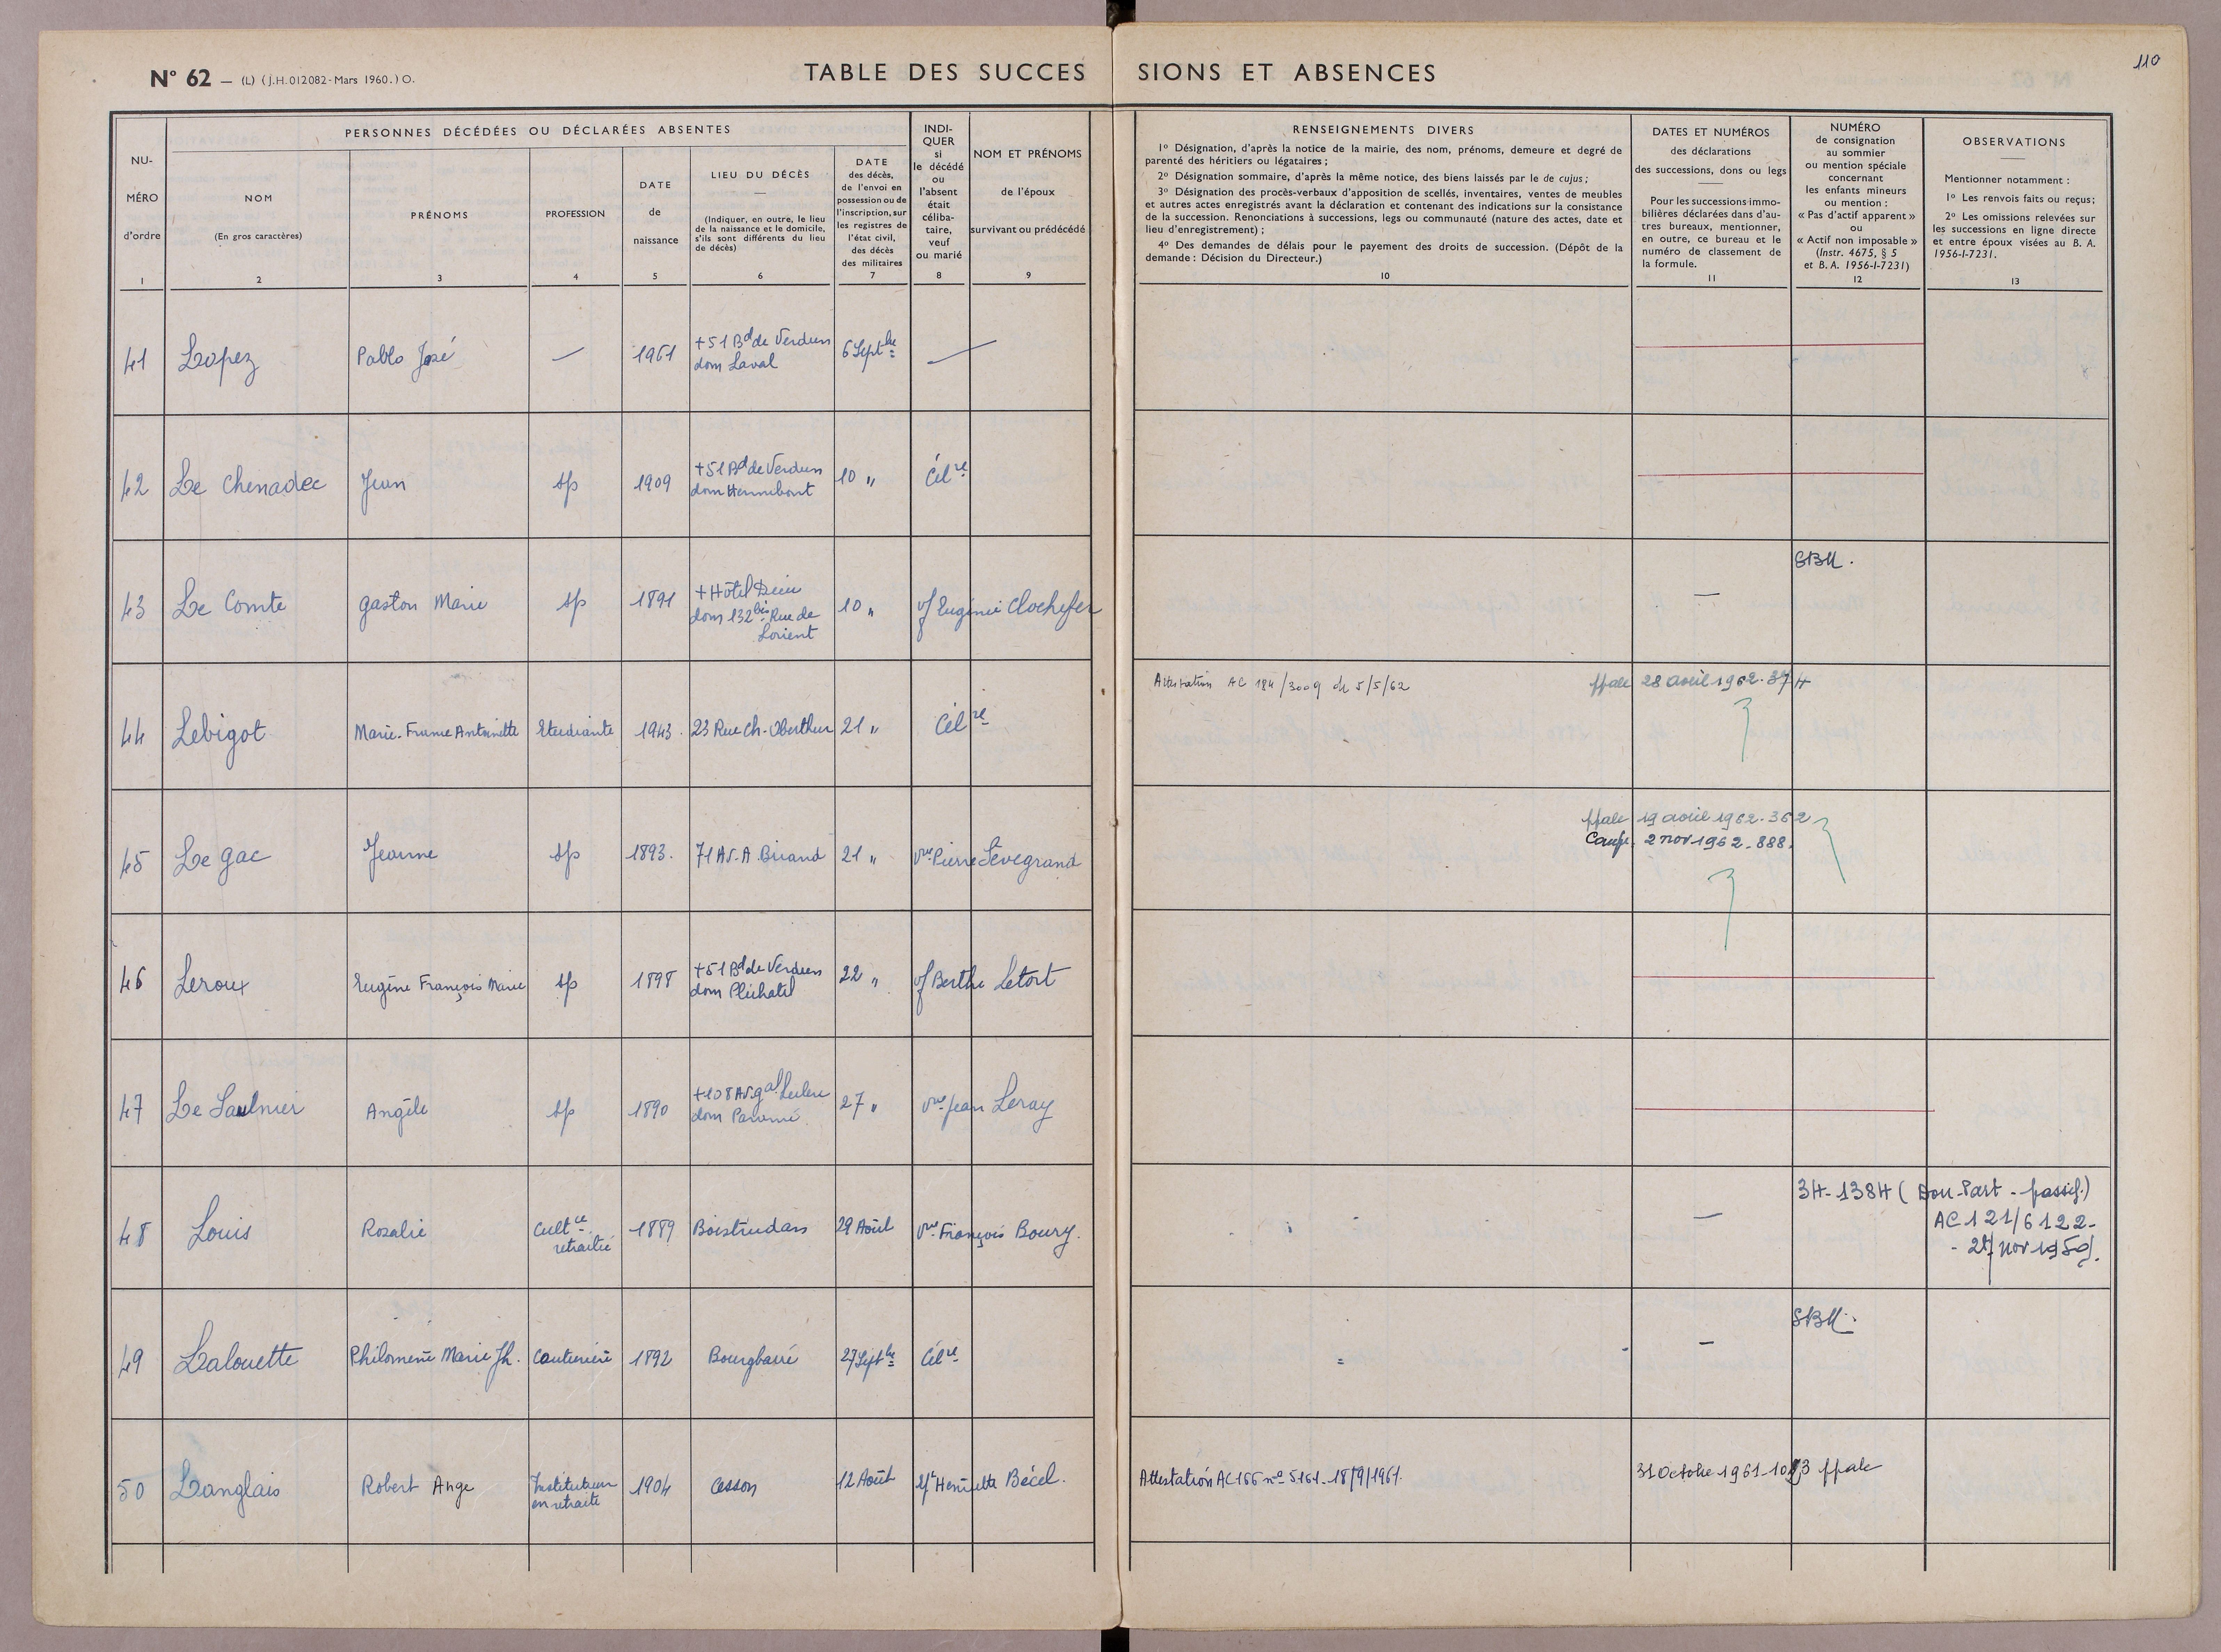 N° 62 — (L) (J.H.012082-Mars 1960.) O.
TABLE DES SUCCES SIONS ET ABSENCES
110
NU-
MÉRO
d'ordre
1
PERSONNES DÉCÉDÉES OU DÉCLARÉES ABSENTES
NOM
(En gros caractères)
2
PRÉNOMS
3
PROFESSION
4
DATE
de
naissance
5
LIEU DU DÉCÈS
(Indiquer, en outre, le lieu
de la naissance et le domicile,
s'ils sont différents du lieu
de décès)
6
DATE
des décès,
de l'envoi en
possession ou de
l'inscription, sur
les registres de
l'état civil,
des décès
des militaires
7
INDI-
QUER
si
le décédé
ou
l'absent
était
céliba-
taire,
veuf
ou marié
8
NOM ET PRÉNOMS
de l'époux
survivant ou prédécédé
9
RENSEIGNEMENTS DIVERS
1º Désignation, d'après la notice de la mairie, des nom, prénoms, demeure et degré de
parenté des héritiers ou légataires ;
2º Désignation sommaire, d'après la même notice, des biens laissés par le de cujus ;
3º Désignation des procès-verbaux d'apposition de scellés, inventaires, ventes de meubles
et autres actes enregistrés avant la déclaration et contenant des indications sur la consistance
de la succession. Renonciations à successions, legs ou communauté (nature des actes, date et
lieu d'enregistrement) ;
4º Des demandes de délais pour le payement des droits de succession. (Dépôt de la
demande : Décision du Directeur.)
10
DATES ET NUMÉROS
des déclarations
des successions, dons ou legs
Pour les successions immo-
bilières déclarées dans d'au-
tres bureaux, mentionner,
en outre, ce bureau et le
numéro de classement de
la formule.
11
NUMÉRO
de consignation
au sommier
ou mention spéciale
concernant
les enfants mineurs
ou mention :
« Pas d'actif apparent »
ou
« Actif non imposable »
(Instr. 4675, § 5
et B. A. 1956-I-7231)
12
OBSERVATIONS
Mentionner notamment :
1º Les renvois faits ou reçus ;
2º Les omissions relevées sur
les successions en ligne directe
et entre époux visées au B. A.
1956-I-7231.
13
41 Lopez Pablo José — 1961 +51 Bd de Verdun
dom Laval
6 Septbre —
42 Le Chenadec Jean sp 1909 +51 Bd de Verdun
dom Hennebont
10 " Célre
43 Le Comte Gaston Marie sp 1891 +Hôtel Dieu
dom 132bis Rue de
Lorient
10 " vf Eugénie Clochefer — SBM.
44 Lebigot Marie-France Antoinette Etudiante 1943 23 Rue Ch. Oberthur 21 " Célre
Attestation AC 184/3009 du 5/5/62 ppale 28 avril 1962-374
45 Le Gac Jeanne sp 1893. 71 Av. A. Briand 21 " vve Pierre Sévegrand
ppale 19 avril 1962-362
2 nov 1962-888.
46 Leroux Eugène François Marie sp 1898 +51 Bd de Verdun
dom Pléchatel
22 " vf Berthe Letort
47 Le Saulnier Angèle sp 1890 +108 Av. Gal Leclerc
dom Paramé
27 " vve Jean Leray
48 Louis Rosalie Cultce
retraitée
1889 Boistrudan 29 Août vve François Boury. — 34-1384 (Don-Part - passif.)
AC 121/6122-
- 27 nov 1959).
49 Lalouette Philomène Marie Jh. Couturière 1892 Bourgbarré 27 Septbre Célre = — SBM.
50 Langlais Robert Ange Instituteur
en retraite
1904 Cesson 12 Août Henriette Bécel.
Attestation AC 166 nº 5161-18/9/1961. 31 Octobre 1961- ppale